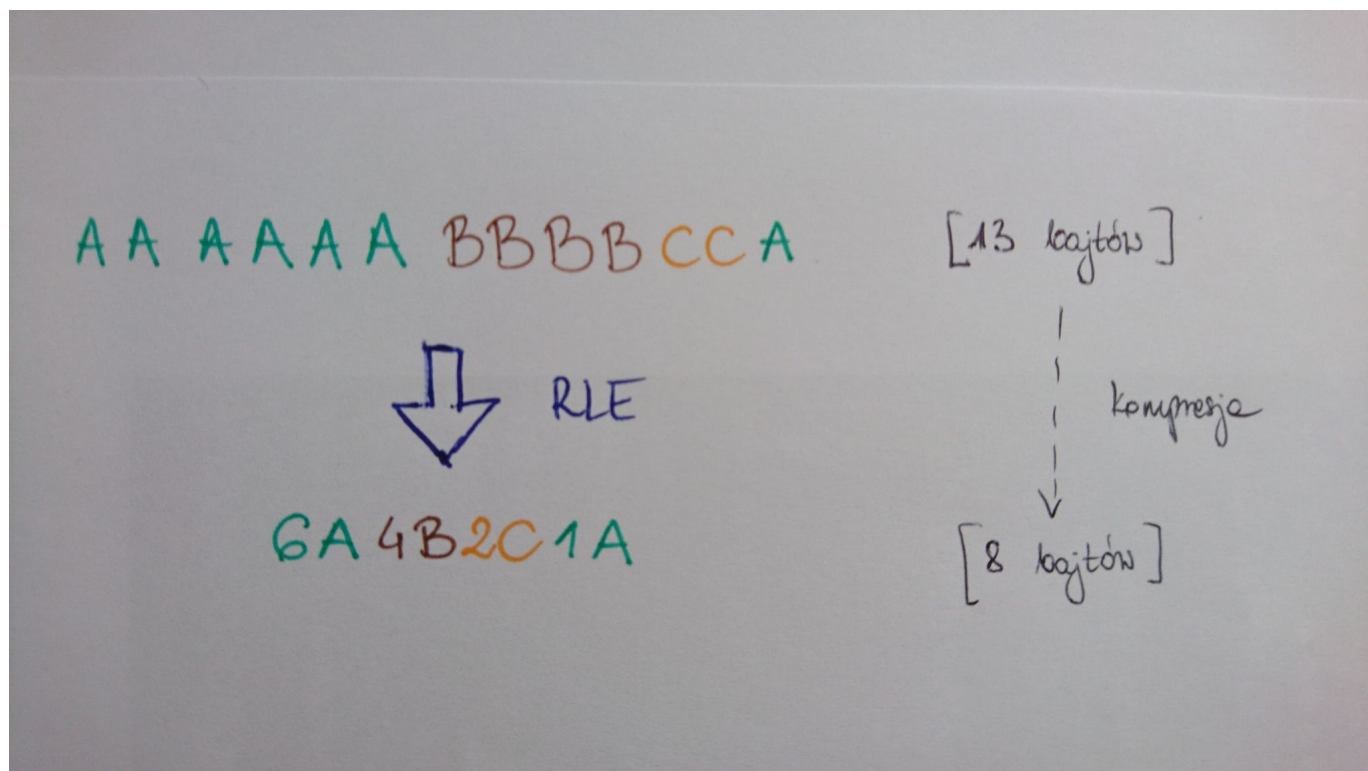 AA AAAA BBBB CC A [13 bajtów]
RLE kompresja
6A 4B 2C 1A [8 bajtów]